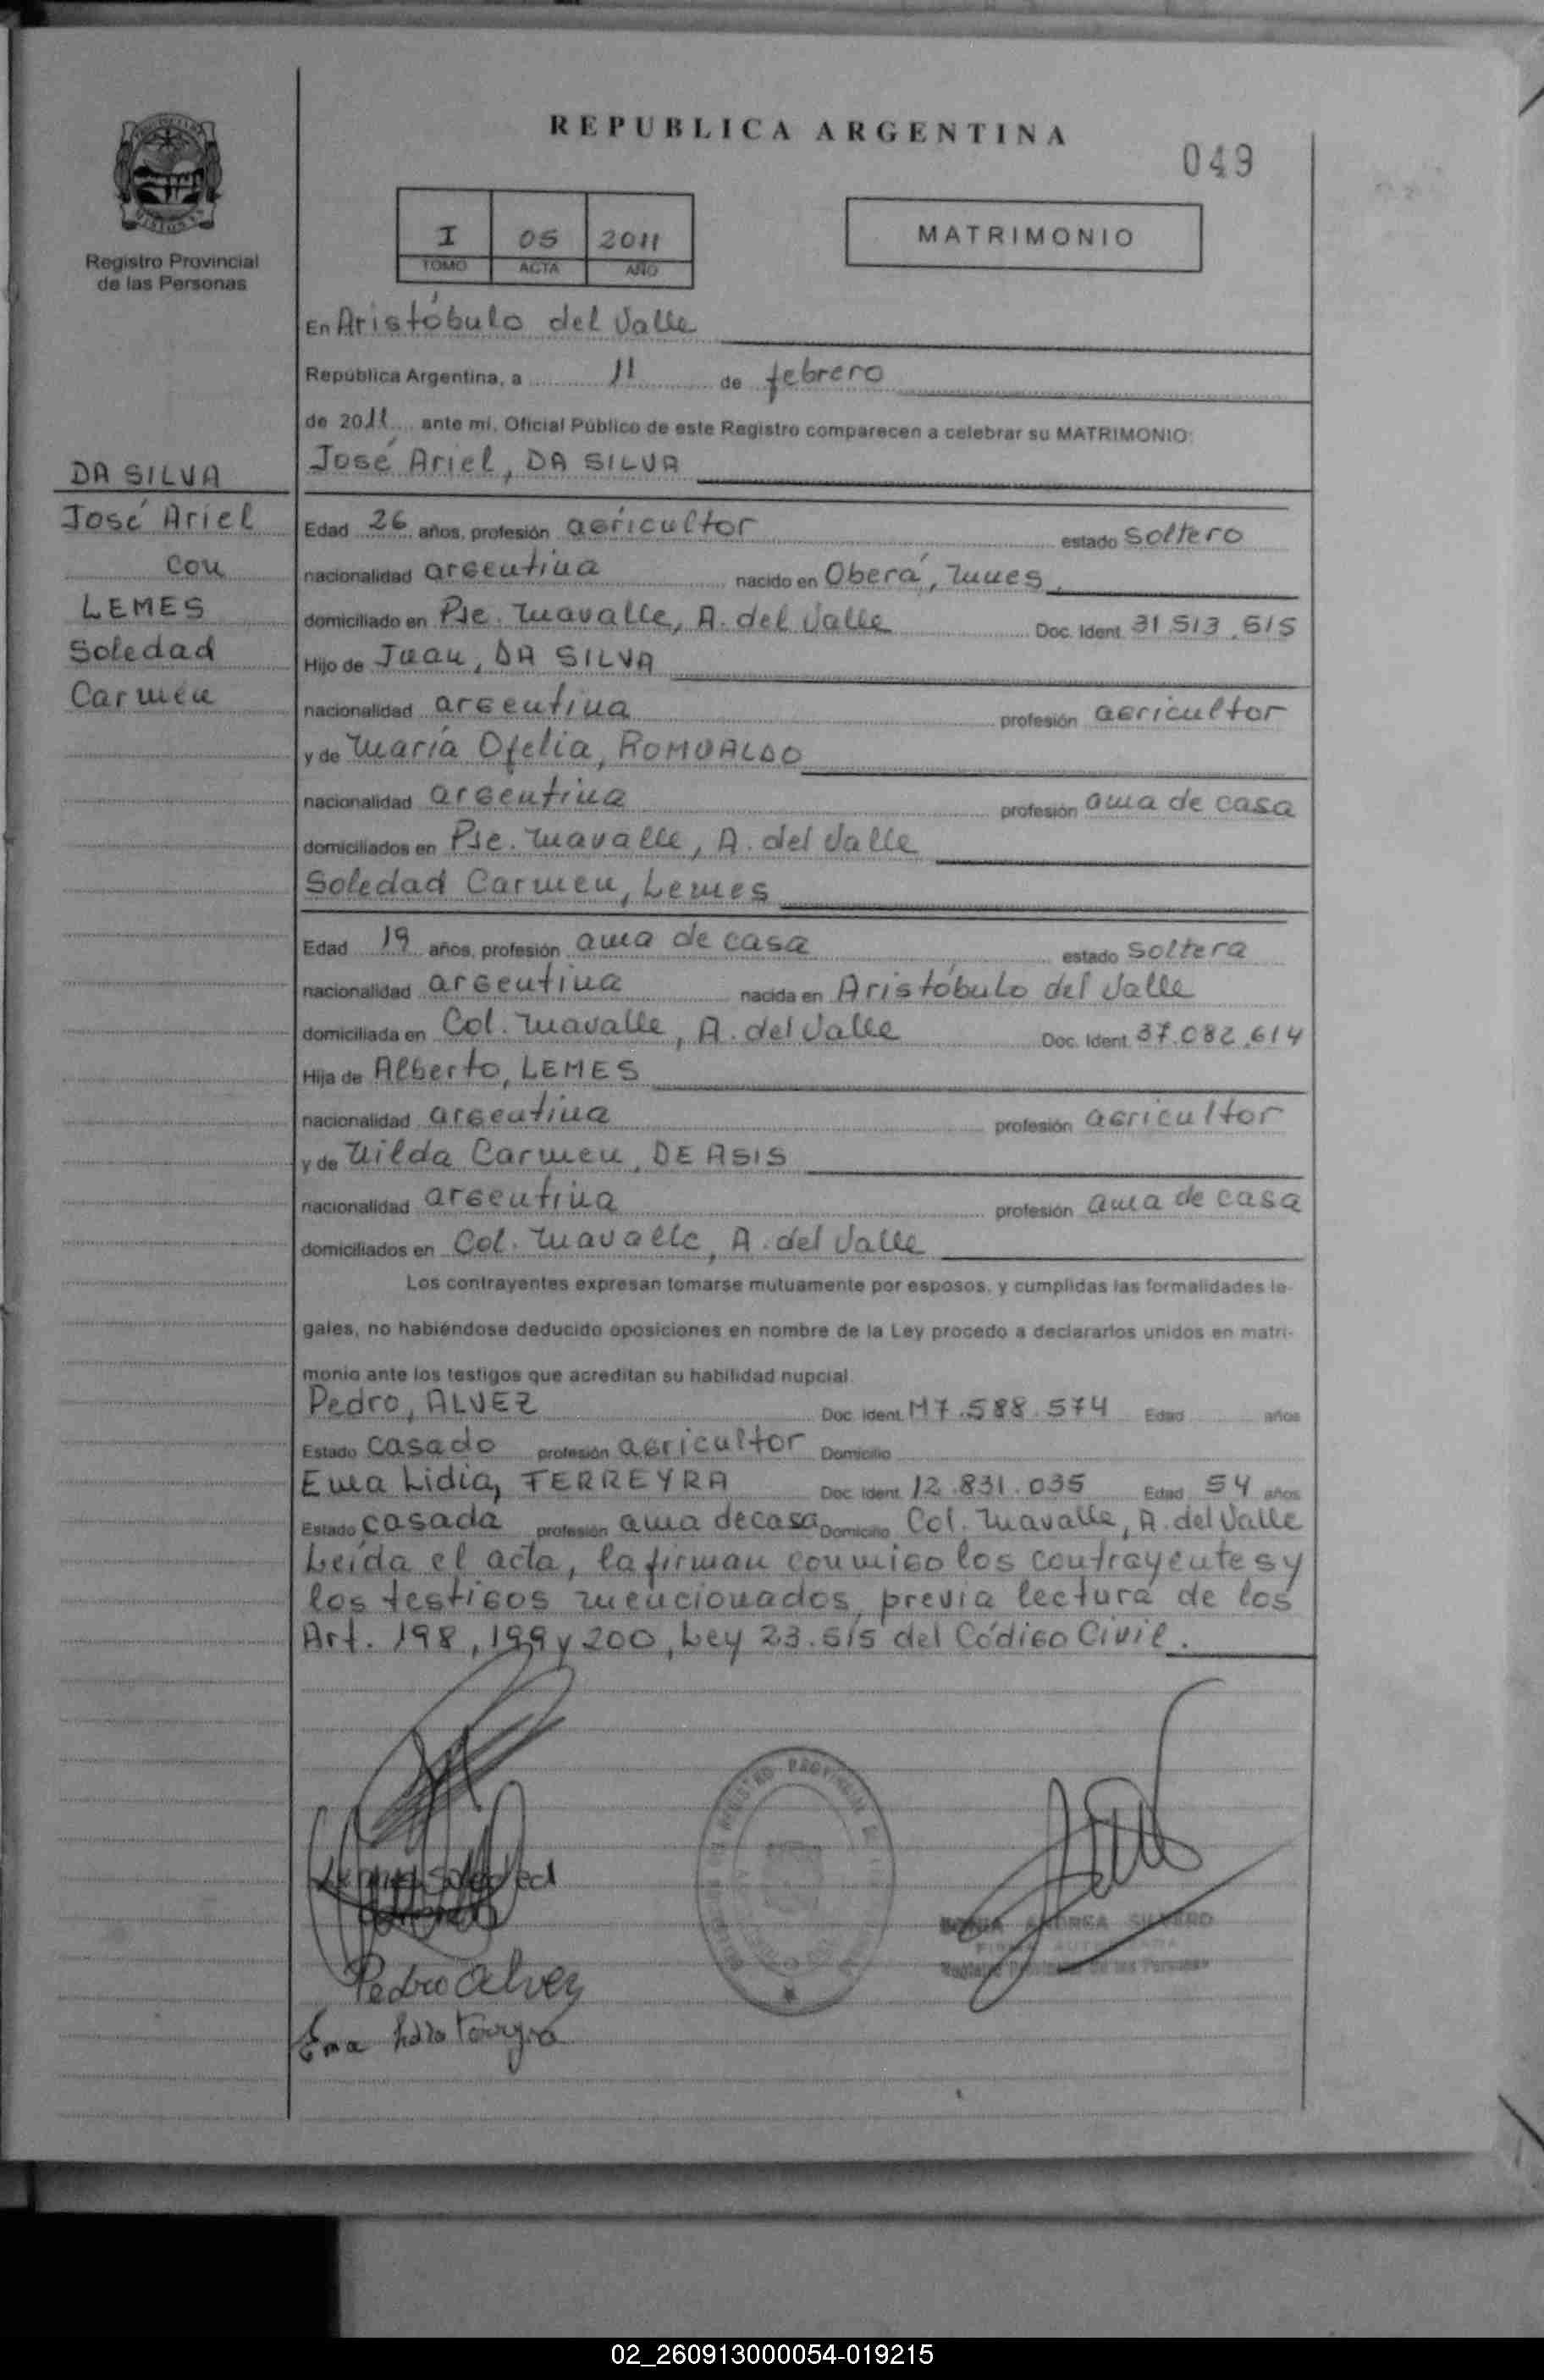 REPUBLICA ARGENTINA
049
I 05 2011
TOMO ACTA AÑO
MATRIMONIO
Registro Provincial
de las Personas
En Aristóbulo del Valle
República Argentina, a 11 de febrero
de 2011 ante mi, Oficial Público de este Registro comparecen a celebrar su MATRIMONIO:
José Ariel, DA SILVA
DA SILVA
José Ariel
con
LEMES
Soledad
Carmen
Edad 26 años, profesión agricultor estado soltero
nacionalidad argentina nacido en Oberá, Mnes
domiciliado en Pje. Mavalle, A. del Valle Doc. Ident. 31.513.515
Hijo de Juan, DA SILVA
nacionalidad argentina profesión agricultor
y de María Ofelia, ROMUALDO
nacionalidad argentina profesión ama de casa
domiciliados en Pje. Mavalle, A. del Valle
Soledad Carmen, Lemes
Edad 19 años, profesión ama de casa estado soltera
nacionalidad argentina nacida en Aristóbulo del Valle
domiciliada en Col. Mavalle, A. del Valle Doc. Ident. 37.082.614
Hija de Alberto, LEMES
nacionalidad argentina profesión agricultor
y de Nilda Carmen, DE ASIS
nacionalidad argentina profesión ama de casa
domiciliados en Col. Mavalle, A. del Valle
Los contrayentes expresan tomarse mutuamente por esposos, y cumplidas las formalidades le-
gales, no habiéndose deducido oposiciones en nombre de la Ley procedo a declararlos unidos en matri-
monio ante los testigos que acreditan su habilidad nupcial
Pedro, ALVEZ Doc. Ident. M7.588.574 Edad años
Estado casado profesión agricultor Domicilio
Ema Lidia, FERREYRA Doc. Ident. 12.831.035 Edad 54 años
Estado casada profesión ama de casa Domicilio Col. Mavalle, A. del Valle
Leída el acta, la firman conmigo los contrayentes y
los testigos mencionados, previa lectura de los
Art. 198, 199 y 200, Ley 23.515 del Código Civil.
Lemes Soledad
Carmen
ANDREA SILVERO
Registro Provincial de las Personas
Pedro Alvez
Ema
02_260913000054-019215